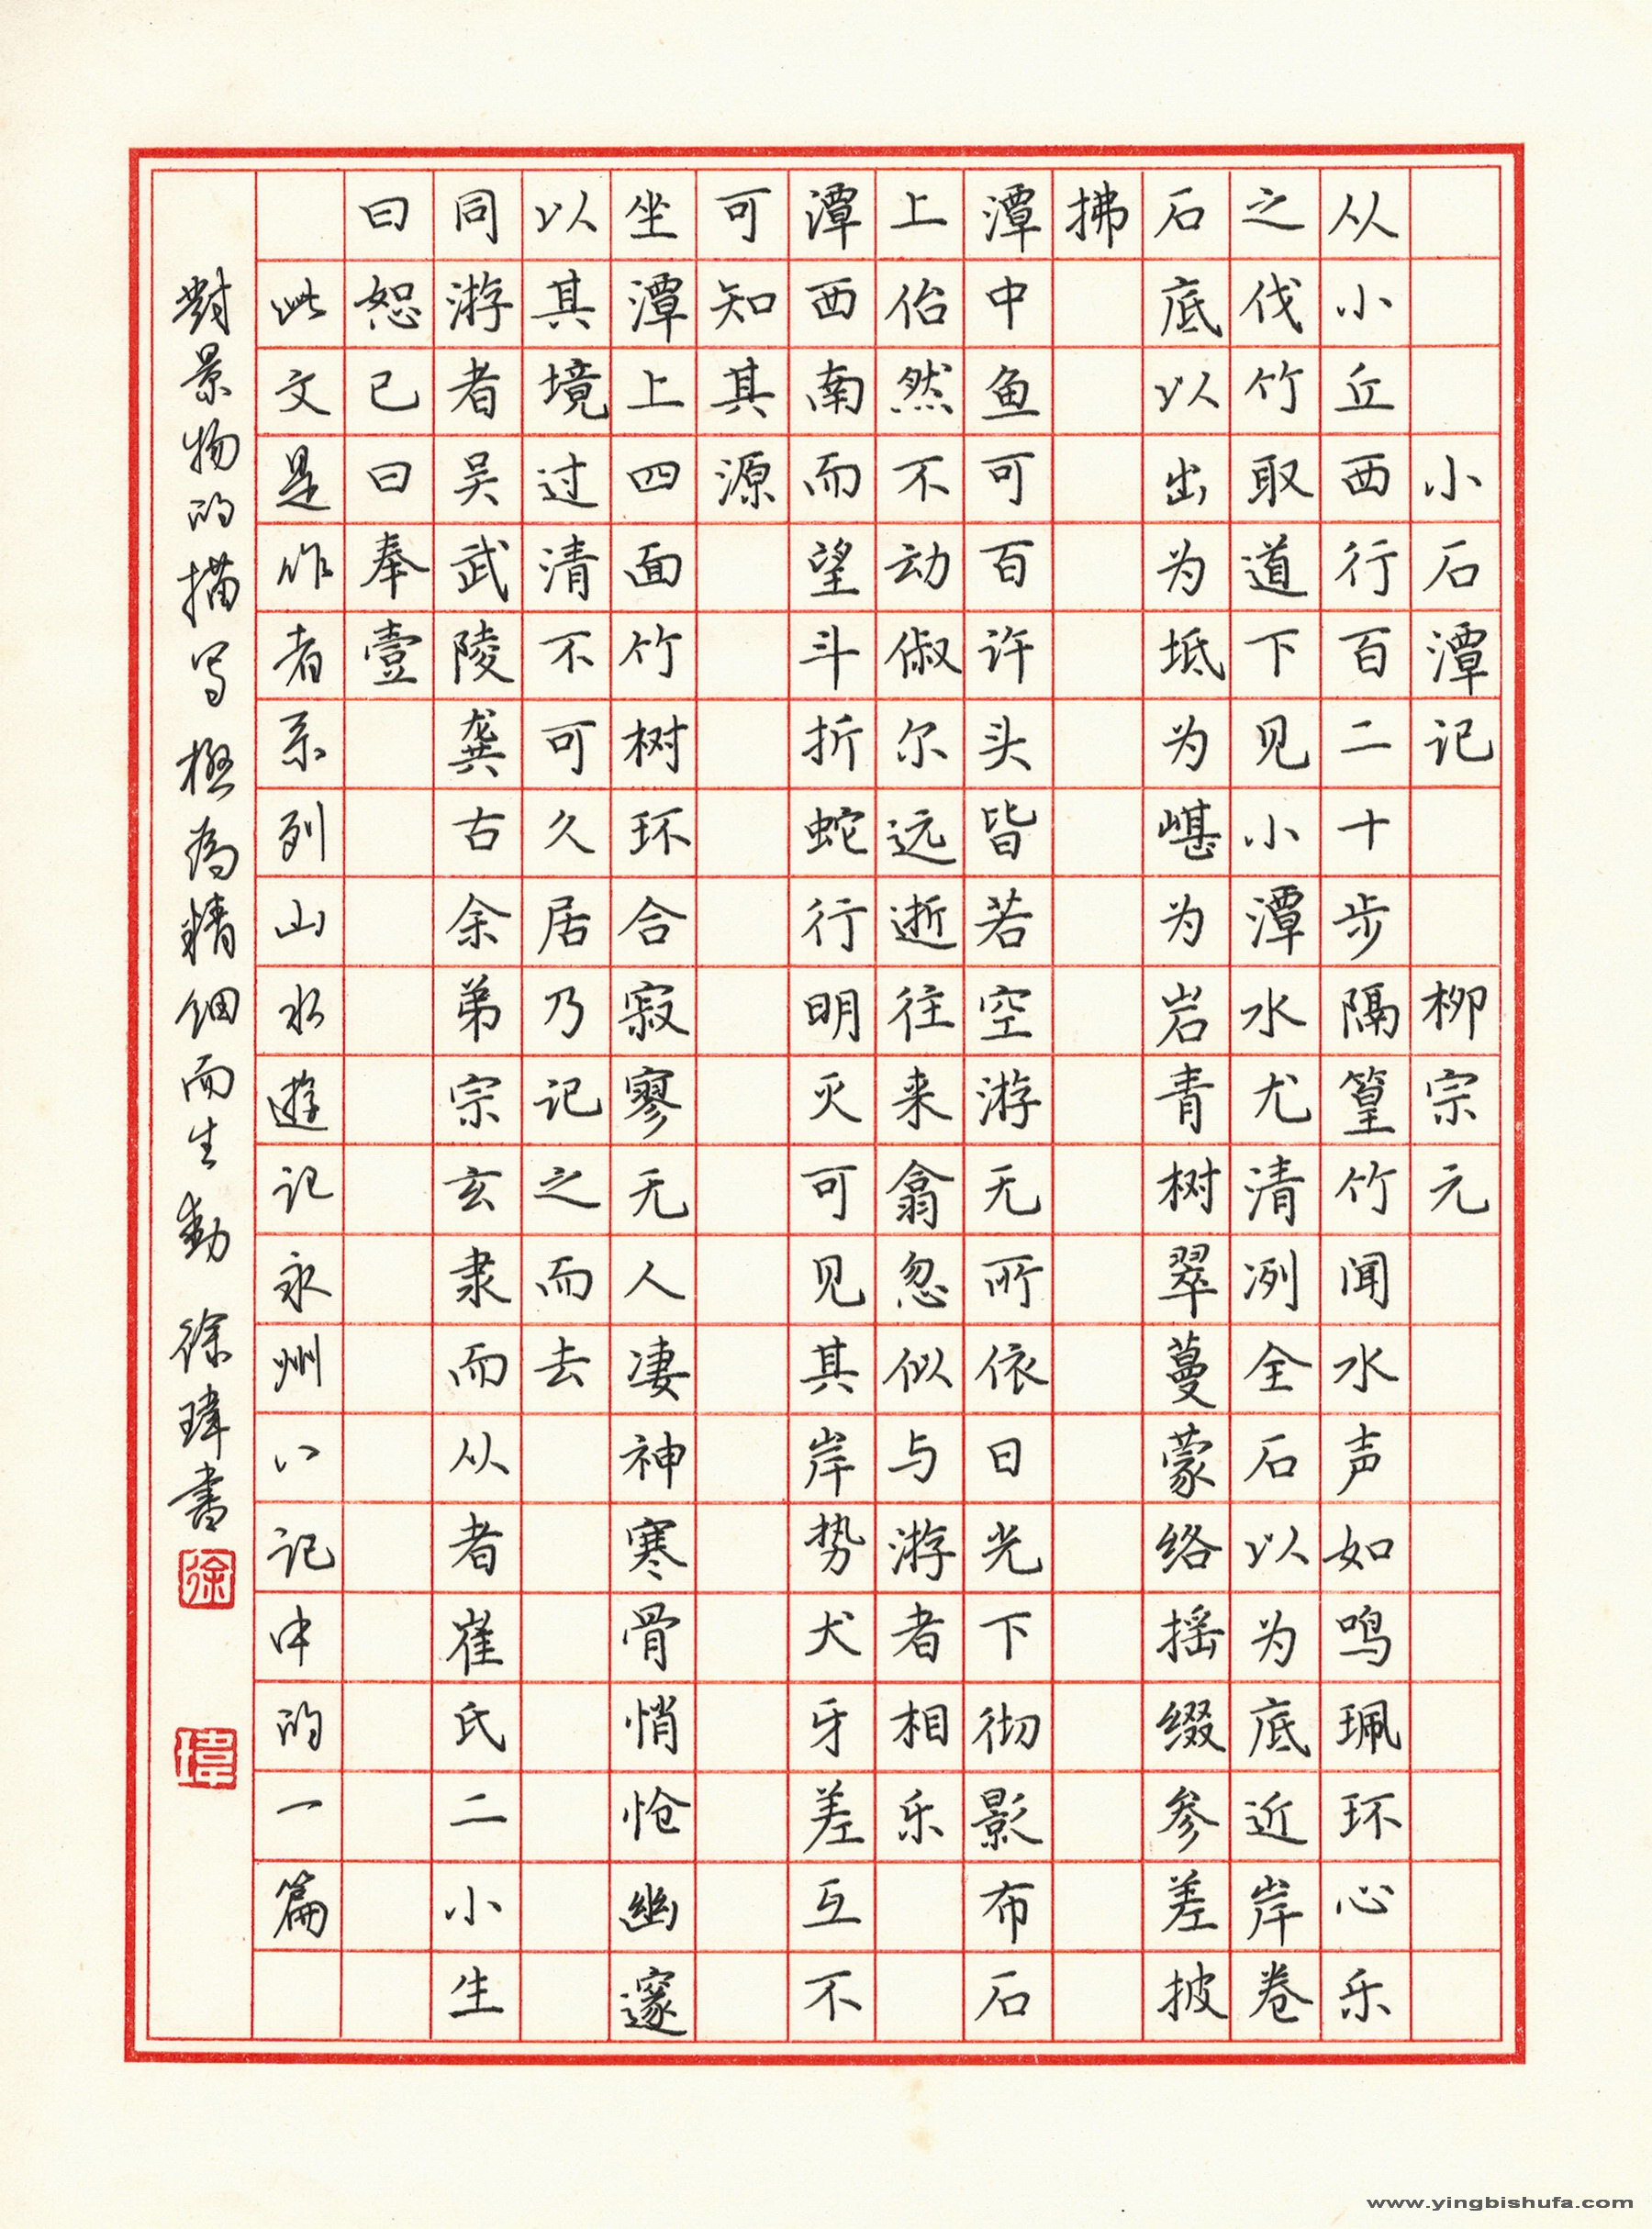 小石潭记 柳宗元
从小丘西行百二十步隔篁竹闻水声如鸣珮环心乐
之伐竹取道下见小潭水尤清冽全石以为底近岸卷
石底以出为坻为屿为嵁为岩青树翠蔓蒙络摇缀参差披
拂
潭中鱼可百许头皆若空游无所依日光下彻影布石
上佁然不动俶尔远逝往来翕忽似与游者相乐
潭西南而望斗折蛇行明灭可见其岸势犬牙差互不
可知其源
坐潭上四面竹树环合寂寥无人凄神寒骨悄怆幽邃
以其境过清不可久居乃记之而去
同游者吴武陵龚古余弟宗玄隶而从者崔氏二小生
曰恕己曰奉壹
此文是作者系列山水遊记永州八记中的一篇
對景物的描写極為精细而生動 徐瑋書
徐
瑋
www.yingbishufa.com